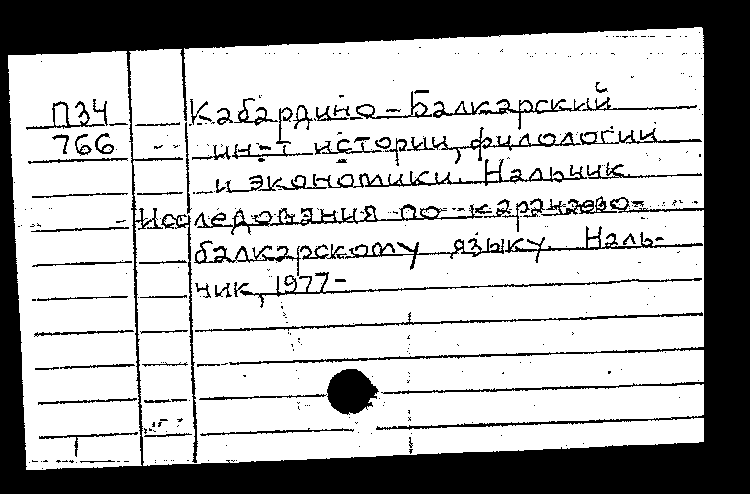 ПЗЧ Кабардино-Балкарский
766 ин-т истории, филологии
и экономики. Нальчик.
Исследования по карачаево-
балкарскому языку. Наль-
чик, 1977-